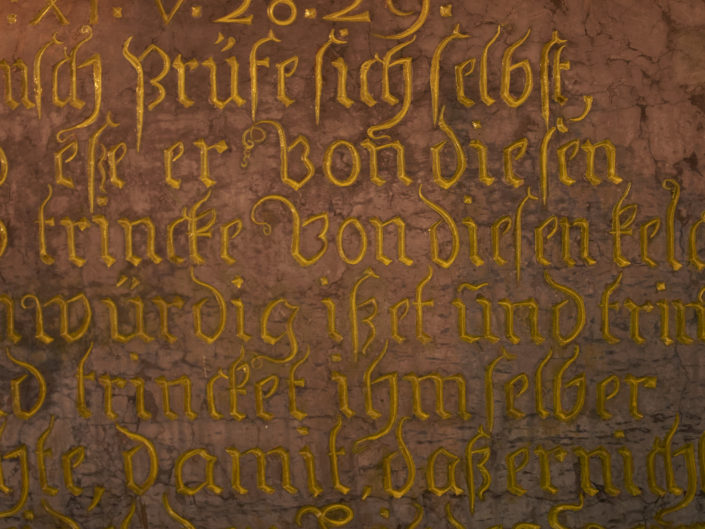 XI. V. 28. 29.
Prüfe sich selbst,
eße er Von dießen
trincke Von diesen kelch
würdig ißet uñ trin
trincket ihm selber
damit, daß er nicht